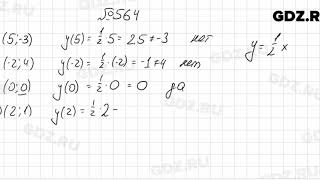 GDZ.RU
№564
(5;-3) y(5) = 1/2 · 5 = 2,5 ≠ -3 нет
y = 1/2 x
(-2; 4) y(-2) = 1/2 · (-2) = -1 ≠ 4 нет
(0; 0) y(0) = 1/2 · 0 = 0 да
(2; 1) y(2) = 1/2 · 2 -
GDZ.RU